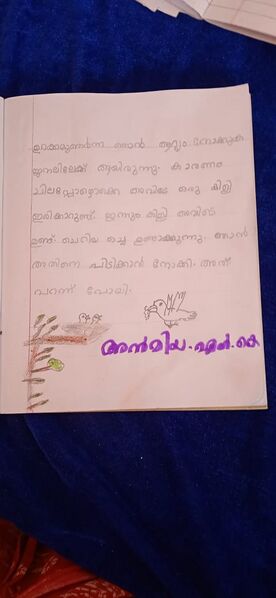 ഉറക്കമുണർന്ന ഞാൻ ആദ്യം നോക്കുക
ജനലിലേക്ക് ആയിരുന്നു. കാരണം
ചിലപ്പോഴൊക്കെ അവിടെ ഒരു കിളി
ഇരിക്കാറുണ്ട്. ഇന്നും കിളി അവിടെ
ഉണ്ട് ചെറിയ ഒച്ച ഉണ്ടാക്കുന്നു. ഞാൻ
അതിനെ പിടിക്കാൻ നോക്കി. അത്
പറന്ന് പോയി.
അൻമിയ. എൻ. കെ